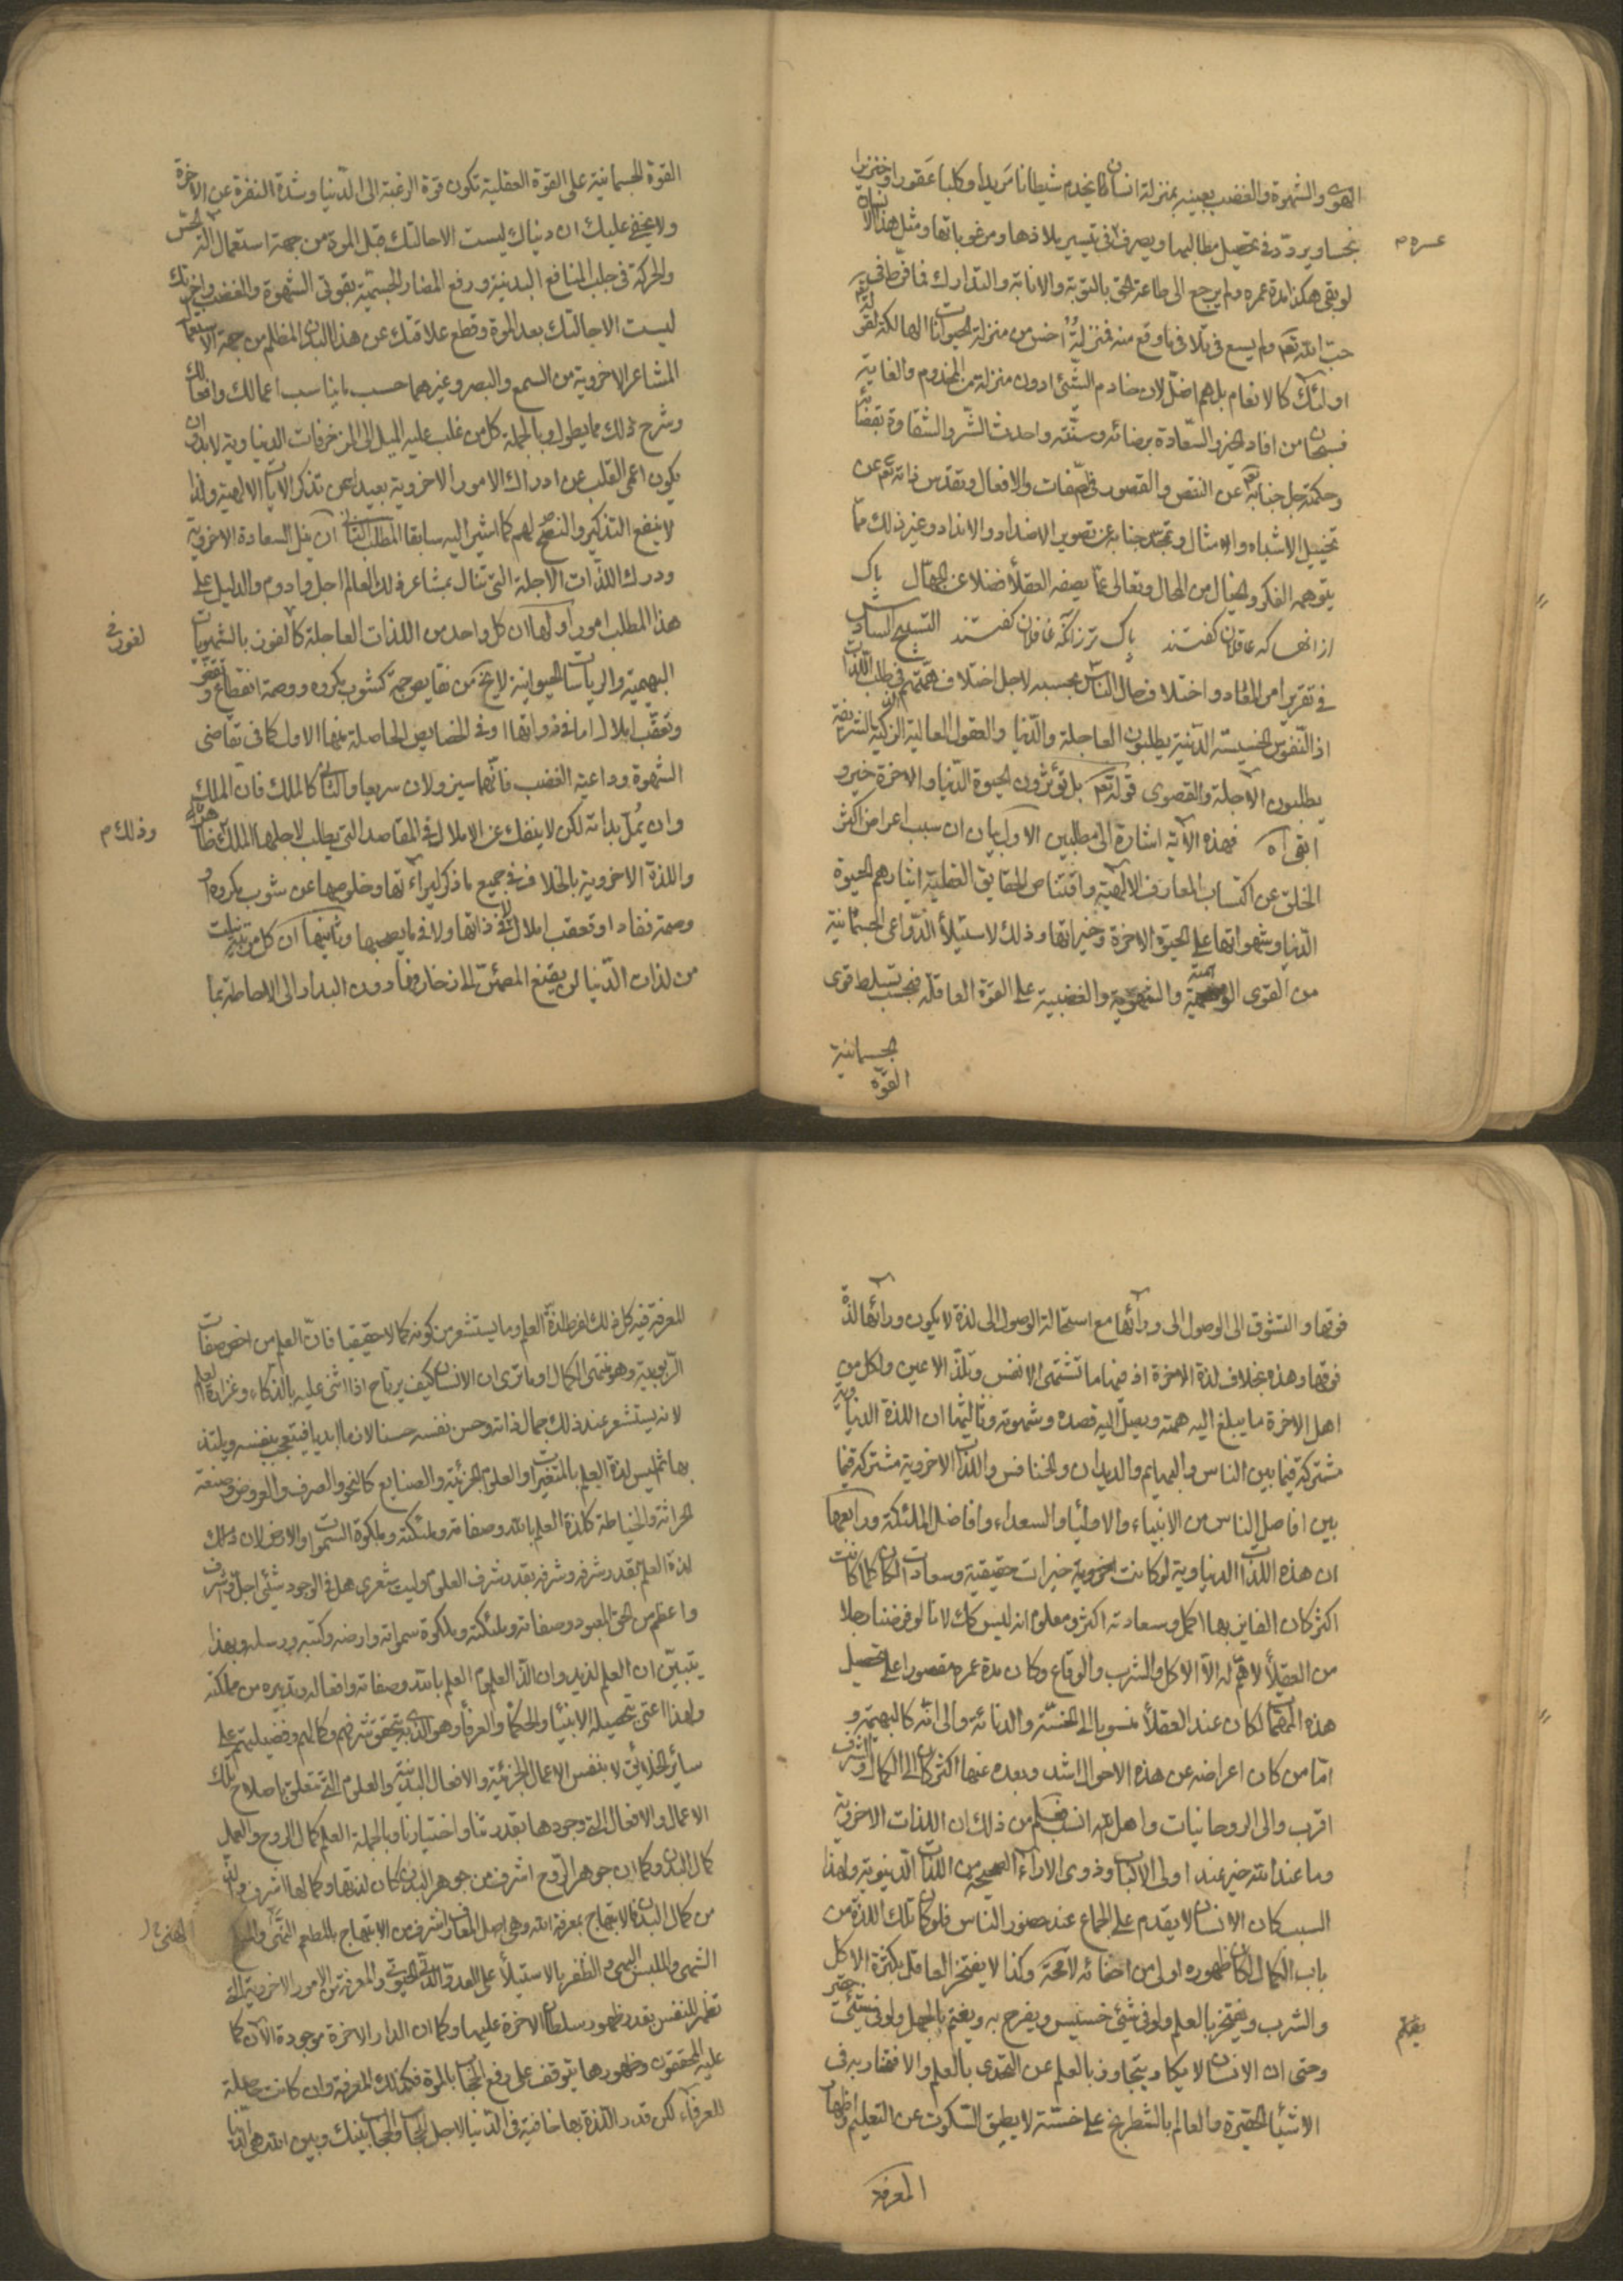 الهوى والشهوة والغضب بعينه بمنزلة انسان كان يخدم شيطانا مريدا وكلبا عقورا وخنزيرا
نجسا ويردد في تحصيل مطالبها ويصرف في تيسير ملاذها ومرغوباتها ومثل هذا الانسان
لو بقي هكذا مدة عمره ولم يرجع الى طاعة الحق بالتوبة والانابة والتدارك لما فرط في
جنب الله تعم ولم يسع في تلافي ما وقع منه فمنزلته اخس من منزلة الحيوانات الهالكة لقوله تعم
اولئك كالانعام بل هم اضل لان خادم الشئ ادون منزلة من المخدوم والغاية
فسبحان من افاد الخير والسعادة برضائه وسنته واحدث الشر والشقاوة بقضائه
وحكمته جل جنابه عن النقص والقصور في الصفات والافعال وتقدس ذاته تعم عن
تخييل الاشباه والامثال وتمجد جنابه عن تصوير الاضداد والانداد وغير ذلك مما
يتوهمه الفكر والخيال من المحال وتعالى عما يصفه العقلأ فضلا عن الجهال پاك
ازانها كه عاقلان كفتند پاك ترزانكه غافلان كفتند التسبيح السادس
في تقرير امر المعاد و اختلاف حال الناس بحسبه لاجل اختلاف هممهم في طلب اللذات
اذ النفوس الخسيسة الدنية يطلبون العاجلة والدنيا والعقول العالية الزكية الشريفة
يطلبون الاجلة والقصوى قوله تعم بل تؤثرون الحيوة الدنيا والاخرة خير و
ابقى اه فهذه الاية اشارة الى مطلبين الاول بيان ان سبب اعراض اكثر
الخلق عن اكتساب المعارف الالهية واقتناص الحقايق العقلية ايثارهم الحيوة
الدنيا وشهواتها على الحيوة الاخرة وخيراتها وذلك لاستيلأ الدواعي الجسمانية
من القوى الوهمية والشهوية والغضبية على القوة العاقلة فبحسب تسلط قوى
الجسمانية
القوة
القوة الجسمانية على القوة العقلية تكون قوة الرغبة الى الدنيا وشدة النفرة عن الاخرة
ولا يخفى عليك ان دنياك ليست الا حالتك قبل الموت من جهة استعمال آلة الحس
والحركة في جلب المنافع البدنية ورفع المضار الجسمية بقوتى الشهوة والغضب واخرتك
ليست الا حالتك بعد الموت وقطع علاقتك عن هذا البدن المظلم من جهة الاستعمال
المشاعر الاخروية من السمع والبصر وغيرهما حسب ما يناسب اعمالك وافعالك
وشرح ذلك مما يطول وبالجملة كل من غلب عليه الميل الى المزخرفات الدنياوية لا بد ان
يكون اعمى القلب عن ادراك الامور الاخروية بعيدا عن تذكر الايات الالهية ولذا
لا ينفع التذكير والنصح لهم كما اشير اليه سابقا المطلب الثاني ان نيل السعادة الاخروية
ودرك اللذات الاجلة التي تنال بمشاعر ذلك العالم اجل وادوم والدليل على
هذا المطلب امور اولها ان كل واحد من اللذات العاجلة كالفوز بالشهويات
البهيمية والرياسات الحيوانية لا يخ من نقايص جمة كشوب بكروه ووصمة انقطاع و
وتعقب املال اما في ذواتها او في الخصايص الحاصلة منها الاول كما في تقاضى
الشهوة وداعية الغضب فانهما سيزولان سريعا والثاني كالملك فان الملك
وان يمل بذاته لكن لا ينفك عن الاملال في المقاصد التي يطلب لاجلها الملك
واللذة الاخروية بالخلاف في جميع ما ذكر لبراءتها وخلوصها عن شوب مكروه او
وصمة نفاد او تعقب املال لا في ذاتها ولا فيما يصحبها وثانيها ان كل مرتبة نيلت
من لذات الدنيا لن يقنع المصغى الى زخارفها دون البدار الى الاحاطة بما
وذلك م
فوقها والتشوق الى الوصول الى ورآئها مع استحالة الوصول الى لذة لا يكون ورائها لذة
فوقها وهذه بخلاف لذة الاخرة اذ فيها ما تشتهى الانفس وتلذ الاعين ولكل من
اهل الاخرة ما يبلغ اليه همته ويصل اليه قصده وشهوته وثالثها ان اللذة الدنياوية
مشتركة فيما بين الناس والبهايم والديدان والخنافس واللذات الاخروية مشتركة فيما
بين افاضل الناس من الانبياء والاوليأ والسعداء وافاضل الملئكة ورابعها
ان هذه اللذات الدنياوية لو كانت اخروية خيرات حقيقية وسعادات لكان كلما كانت
اكثر كان الفايز بها اكمل وسعادته اكثر ومعلوم انه ليس كك لانا لو فرضنا رجلا
من العقلأ لا هم له الا الاكل والشرب والوقاع وكان مدة عمره مقصورا على تحصيل
هذه المهمات لكان عند العقلأ منسوبا الى الخسة والدنائة والى انه كالبهيمة و
اما من كان اعراضه عن هذه الاحوال اشد وبعده عنها اكثر كان الى الكمال والشرف
اقرب والى الروحانيات واهل الله انسب فعلم من ذلك ان اللذات الاخروية
وما عند الله خير عند اولى الالباب وذوى الاراء الصحيحة من اللذات الدنيوية ولهذا
السبب كان الانسان لا يقدم على الجماع عند حضور الناس فلو كان تلك اللذة من
باب الكمال لكان ظهوره اولى من اخفائه لا محة وكذا لا يفتخر العاقل بكثرة الاكل
والشرب ويفتخر بالعلم ولو في شئ خسيس ويفرح به ويغتم بالجهل ولو في شئ حقير
وحتى ان الانسان لا يكاد يتجاوز بالعلم عن التحدى بالعلم والافتخار به في
الاشيأ الحقيرة والعالم بالشطرنج على خسته لا يطيق السكوت عن التعليم واظهار
المعرفة
المعرفة فيه كل ذلك لفرط لذة العلم وما يستشعر من كونه كمالا حقيقيا فان العلم من اخص صفات
الربوبية وهو منتهى الكمال اوما ترى ان الانسان كيف يرتاح اذا اثنى عليه بالذكاء وغزارة العلم
لانه يستشعر عند ذلك جمال ذاته وحسن نفسه حسنا لازما ابديا فيتعجب بنفسه ويلتذ
بها ثم ليس لذة العلم بالمتغيرات والعلوم الجزئية والصنايع كالنحو والصرف والعروض وصنعة
الحراثة والخياطة كلذة العلم بالله وصفاته وملئكته وملكوة السموات والارض لان
لذة العلم بقدر شرفه وشرفه بقدر شرف العلوم وليت شعرى هل في الوجود شئ اجل واشرف
واعظم من الحق المعبود وصفاته وملئكته وملكوة سمواته وارضه وكتبه ورسله وبهذا
يتبين ان العلم لذيذ وان الذ العلوم العلم بالله وصفاته وافعاله وتدبيره من مملكته
ولهذا اعتنى بتحصيله الانبيأ والحكمأ والعرفأ وهو الذى به يتحقق شرفهم وكمالهم وفضيلتهم على
سائر الخلائق لا بنفس الاعمال الجزئية والافعال البدنية والعلوم التي تتعلق باصلاح تلك
الاعمال والافعال التي وجودها بقدرتنا واختيارنا وبالجملة العلم كمال الروح والعمل
كمال البدن وكما ان جوهر الروح اشرف من جوهر البدن كان لذتها وكمالها اشرف والذ
من كمال البدن فالابتهاج بمعرفة الله وهي اصل المعارف اشرف من الابتهاج بالمطعم
الشهى والملبس البهى والظفر بالاستيلأ على العدو والمعرفة من الامور الاخروية التي
تظهر للنفس بقدر ظهور سلطان الاخرة عليها وكما ان الدار الاخرة موجودة الآن كما
عليه المحققون وظهورها يتوقف على رفع الحجاب بالموت فكذلك المعرفة وان كانت حاصلة
للعرفاء لكن قدر اللذة بها خافية في الدنيا لاجل الحجاب والحجاب بينك وبين الله هي الدنيا